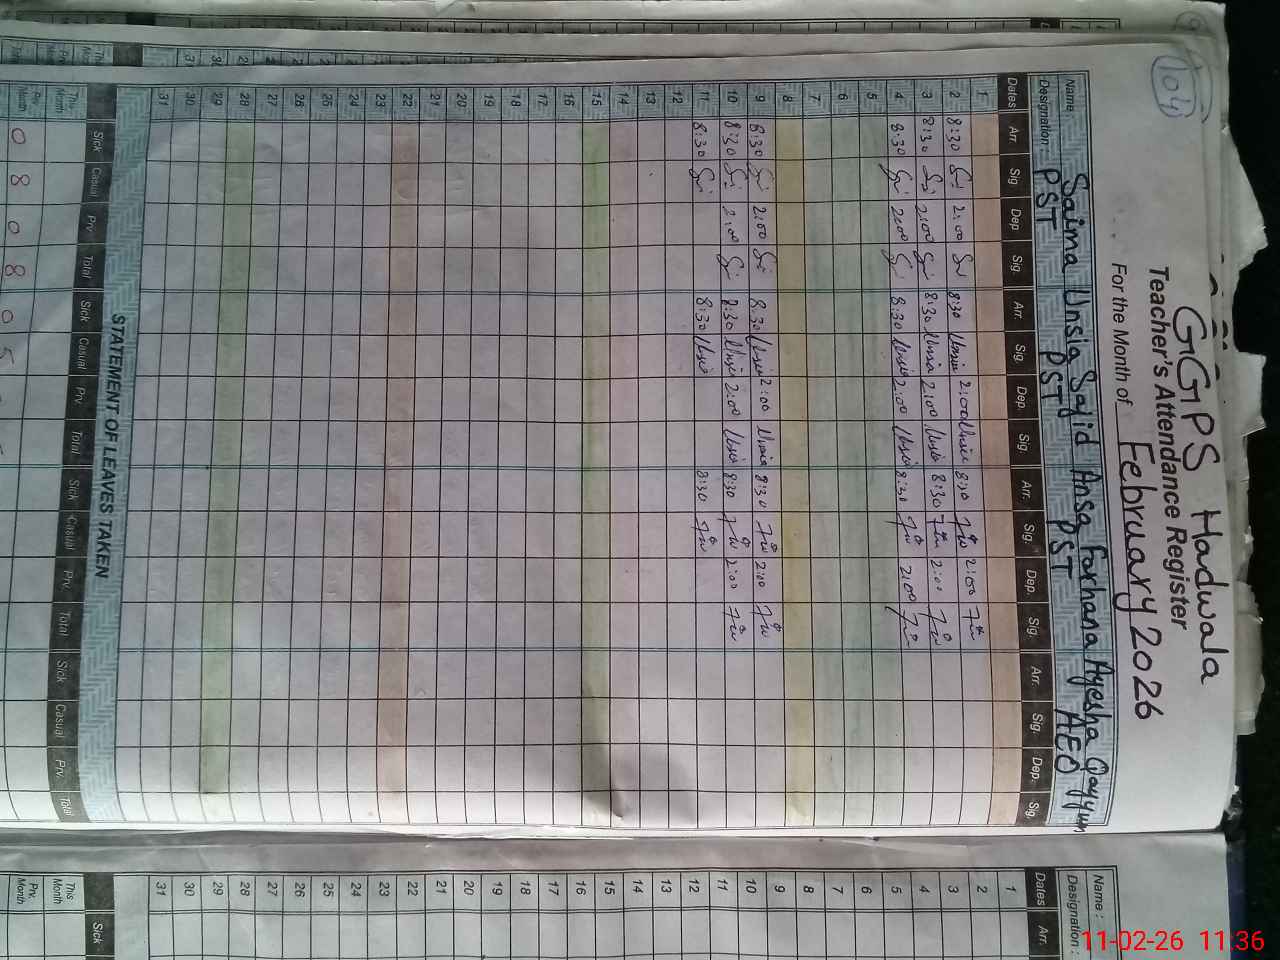 104
GGPS Hadwala
Teacher's Attendance Register
For the Month of February 2026
Name: Saima Unsia Sajid Ansa Farhana Ayesha Qayyum
Designation: PST PST PST AEO
Dates Arr. Sig Dep Sig. Arr. Sig. Dep. Sig. Arr. Sig. Dep. Sig. Arr. Sig. Dep. Sig.
1
2 8:30 2:00 8:30 Unsia 2:00 Unsia 8:30 2:00
3 8:30 2:00 8:30 Unsia 2:00 Unsia 8:30 2:00
4 8:30 2:00 8:30 Unsia 2:00 Unsia 8:30 2:00
5
6
7
8
9 8:30 2:00 8:30 Unsia 2:00 Unsia 8:30 2:00
10 8:30 2:00 8:30 Unsia 2:00 Unsia 8:30 2:00
11 8:30 8:30 Unsia 8:30
12
13
14
15
16
17
18
19
20
21
22
23
24
25
26
27
28
29
30
31
STATEMENT OF LEAVES TAKEN
Sick Casual Prv. Total Sick Casual Prv. Total Sick Casual Prv. Total Sick Casual Prv. Total
This Month
Prv. Month 0 8 0 8 0 5
Name :
Designation :
Dates Arr.
1
2
3
4
5
6
7
8
9
10
11
12
13
14
15
16
17
18
19
20
21
22
23
24
25
26
27
28
29
30
31
Sick
This Month
Prv. Month
11-02-26 11:36